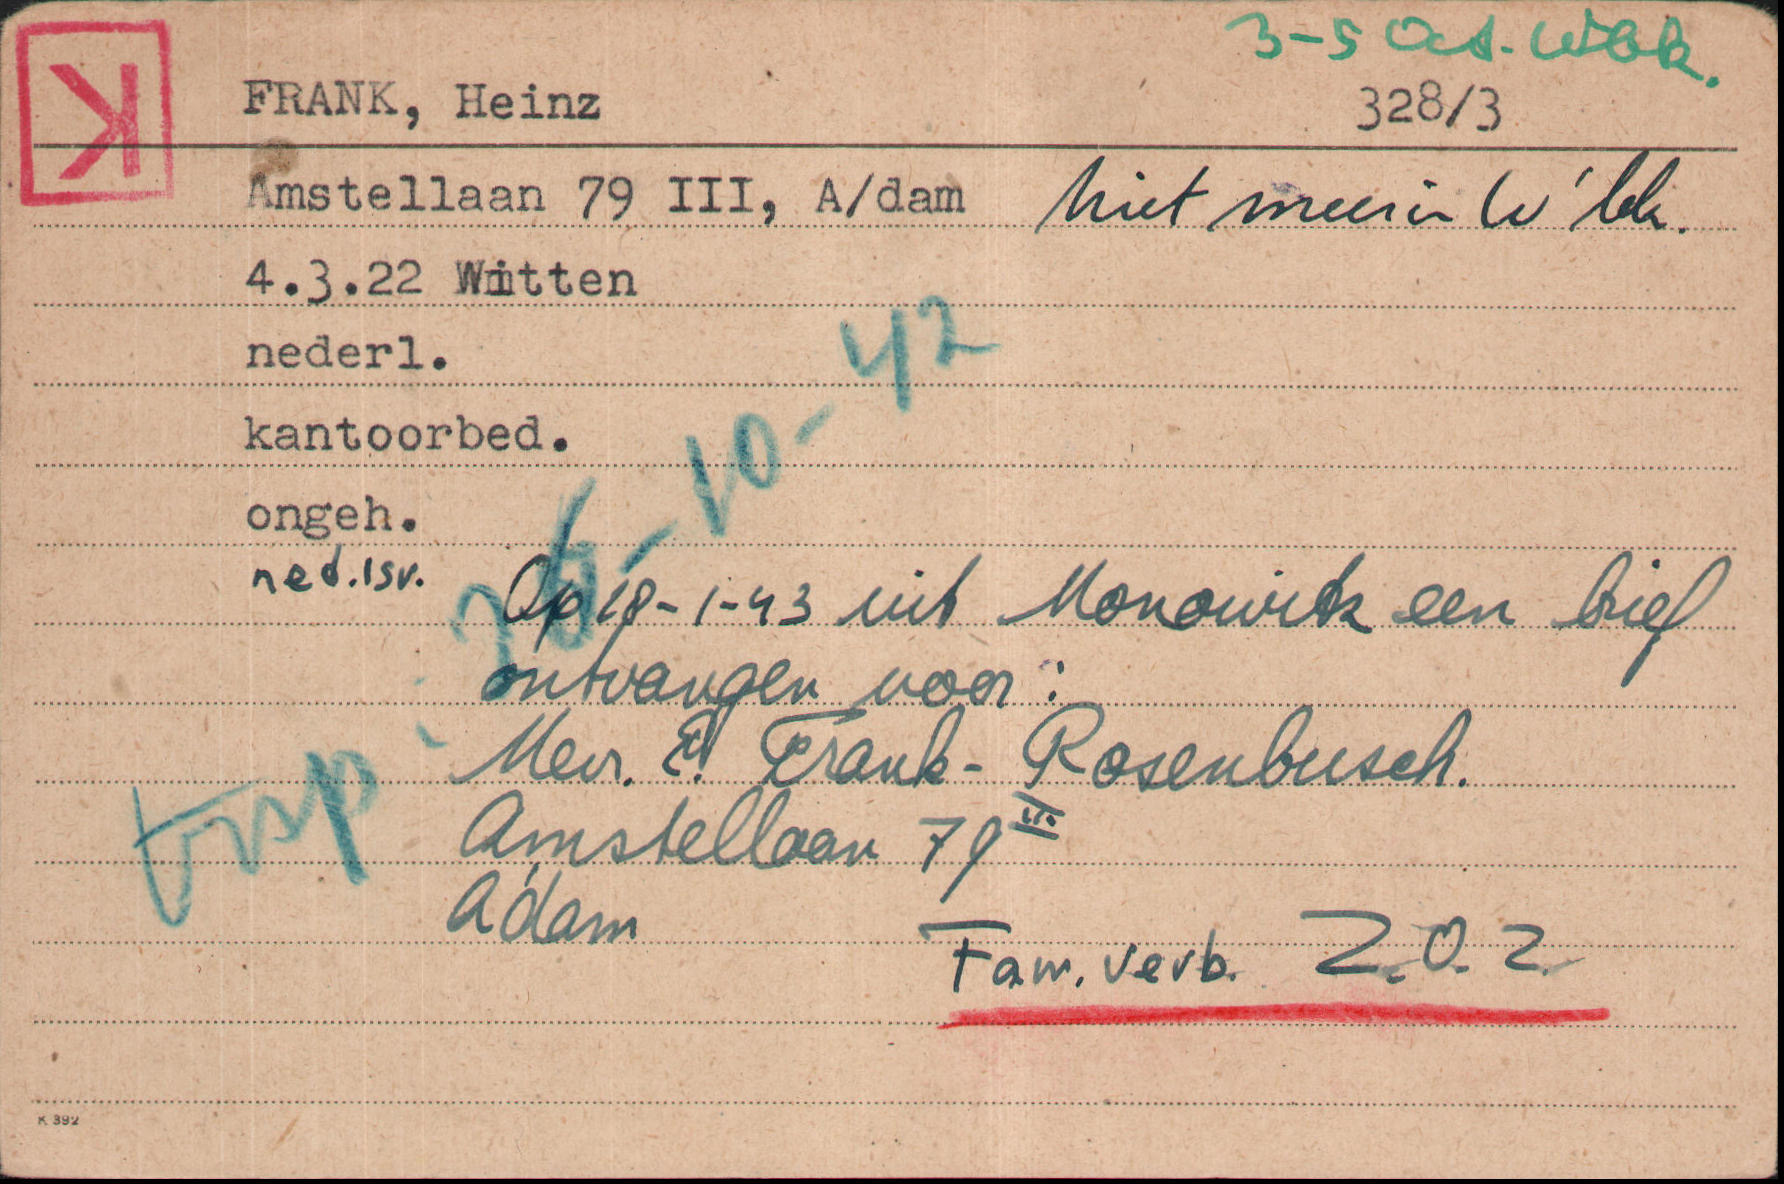 3-5 Oct. Wbk.
K
FRANK, Heinz
328/3
Amstellaan 79 III, A/dam
Niet meer in W'bk.
4.3.22 Witten
nederl.
kantoorbed.
ongeh.
ned.Isr.
trsp. 26-10-42
Op 18-1-43 uit Monowitz een brief
ontvangen voor:
Mevr. E. Frank-Rosenbusch.
Amstellaan 79 III
A'dam
Fam. verb. Z.O.Z.
K 392